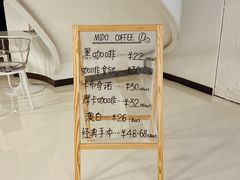 MIDO COFFEE
黑咖啡···¥22
咖啡拿铁···¥30
卡布奇诺···¥30
摩卡咖啡···¥32
澳白···¥26
经典手冲···¥48-68